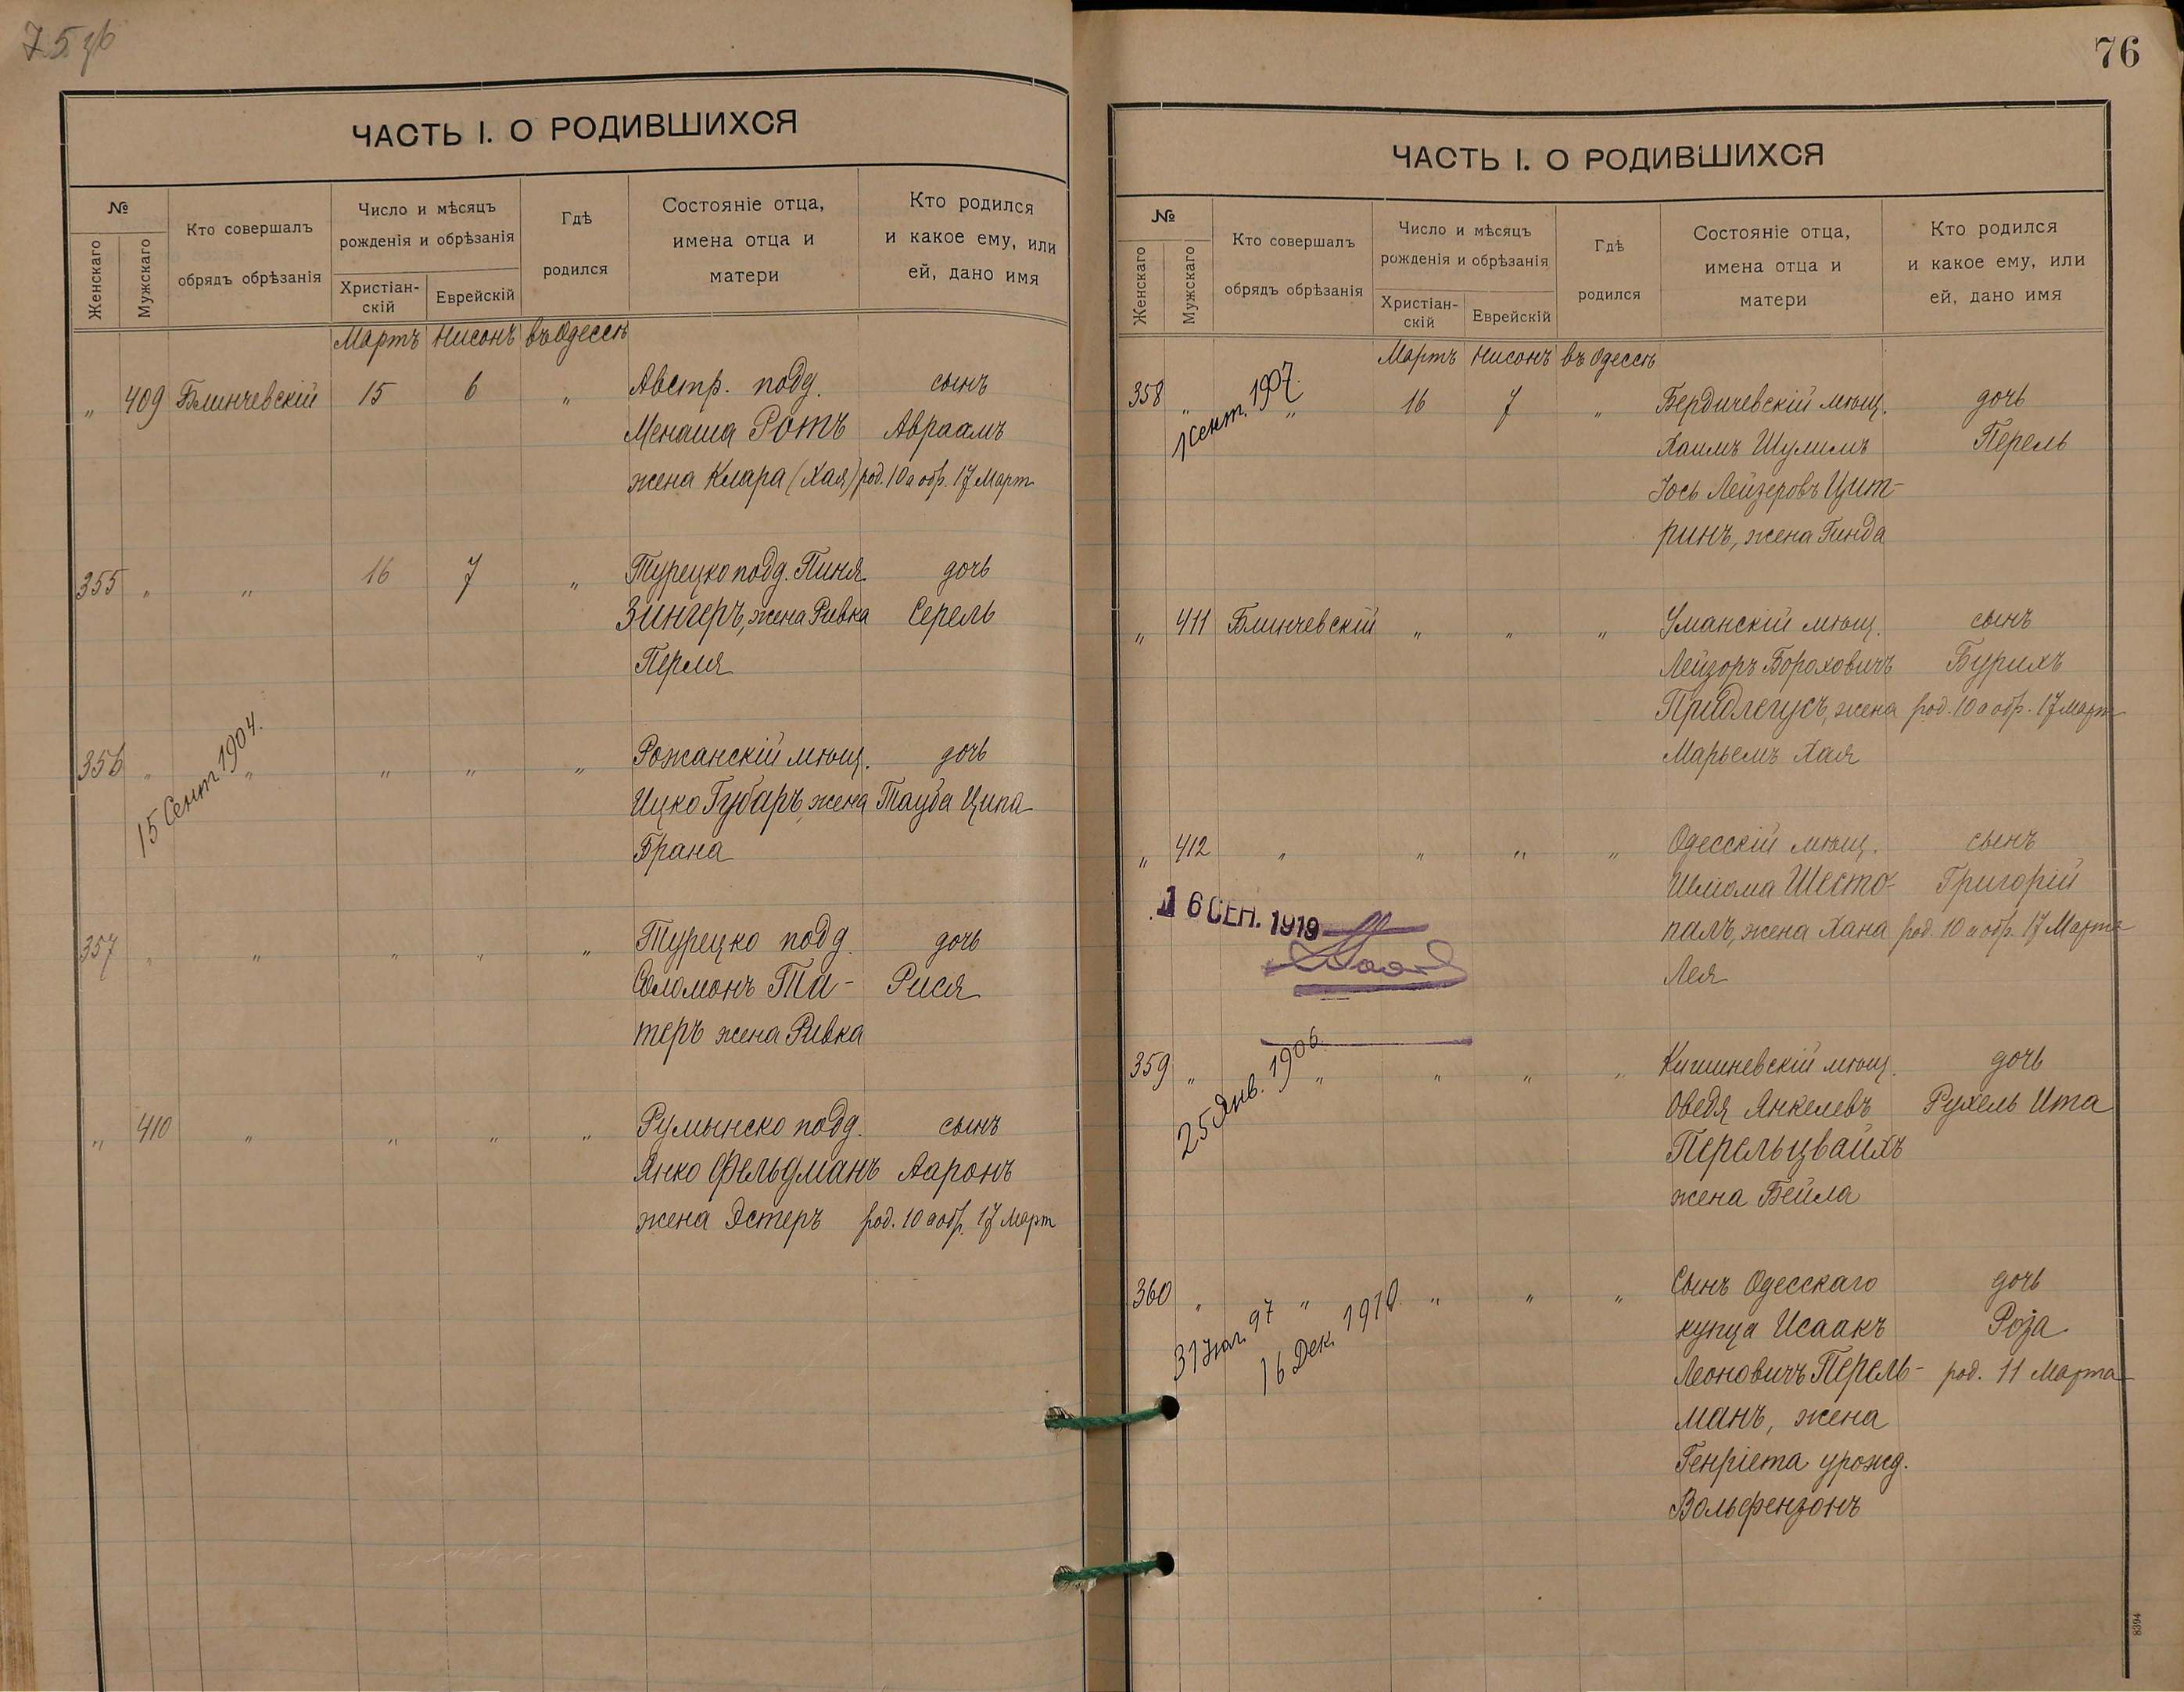 ЧАСТЬ I. О РОДИВШИХСЯ
№
Женскаго
Мужскаго
Кто совершалъ
обрядъ обрѣзанія
Число и мѣсяцъ
рожденія и обрѣзанія
Христіан-
скій
Еврейскій
Гдѣ
родился
Состояніе отца,
имена отца и
матери
Кто родился
и какое ему, или
ей, дано имя
Мартъ Нисонъ въ Одессѣ
„ 409 Блинчевскій 15 6 „ Австр. подд. сынъ
Менаша Ротъ Авраамъ
жена Клара (Хая) род. 10 а обр. 17 Март
355 „ „ 16 7 „ Турецко подд. Пиня дочь
Зингеръ, жена Ривка Серель
Перля
356 „ „ „ „ „ Рожанскій мѣщ. дочь
15 Сент. 1904.
Ицко Губаръ, жена Тауба Ципа
Брана
357 „ „ „ „ „ Турецко подд. дочь
Соломонъ Та- Рися
теръ жена Ривка
„ 410 „ „ „ „ Румынско подд. сынъ
Янко Фельдманъ Ааронъ
жена Эстеръ род. 10 а обр. 17 Март
76
ЧАСТЬ I. О РОДИВШИХСЯ
№
Женскаго
Мужскаго
Кто совершалъ
обрядъ обрѣзанія
Число и мѣсяцъ
рожденія и обрѣзанія
Христіан-
скій
Еврейскій
Гдѣ
родился
Состояніе отца,
имена отца и
матери
Кто родился
и какое ему, или
ей, дано имя
Мартъ Нисонъ въ Одессѣ
358 „ „ 16 7 „ Бердичевскій мѣщ. дочь
1 Сент. 1907.
Хаимъ Шулимъ Перель
Іось Лейзеровъ Цит-
ринъ, жена Гинда
„ 411 Блинчевскій „ „ „ Уманскій мѣщ. сынъ
Лейзоръ Бораховичъ Бурихъ
Придлегусъ, жена род. 10 а обр. 17 Март
Марьемъ Хая
„ 412 „ „ „ „ Одесскій мѣщ. сынъ
Шліома Шесто- Григорій
16 СЕН. 1919
палъ, жена Хана род. 10 а обр. 17 Марта
Лея
359 „ „ „ „ „ Кишиневскій мѣщ. дочь
25 Янв. 1906.
Оведя Янкелевъ Рухель Ита
Перельцвайхъ
жена Бейла
360 „ „ „ „ „ Сынъ Одесскаго дочь
купца Исаакъ Роза
31 Іюл. 97
16 Дек. 1910.
Леоновичъ Перель- род. 11 Марта
манъ, жена
Генріета урожд.
Вольфензонъ
8394